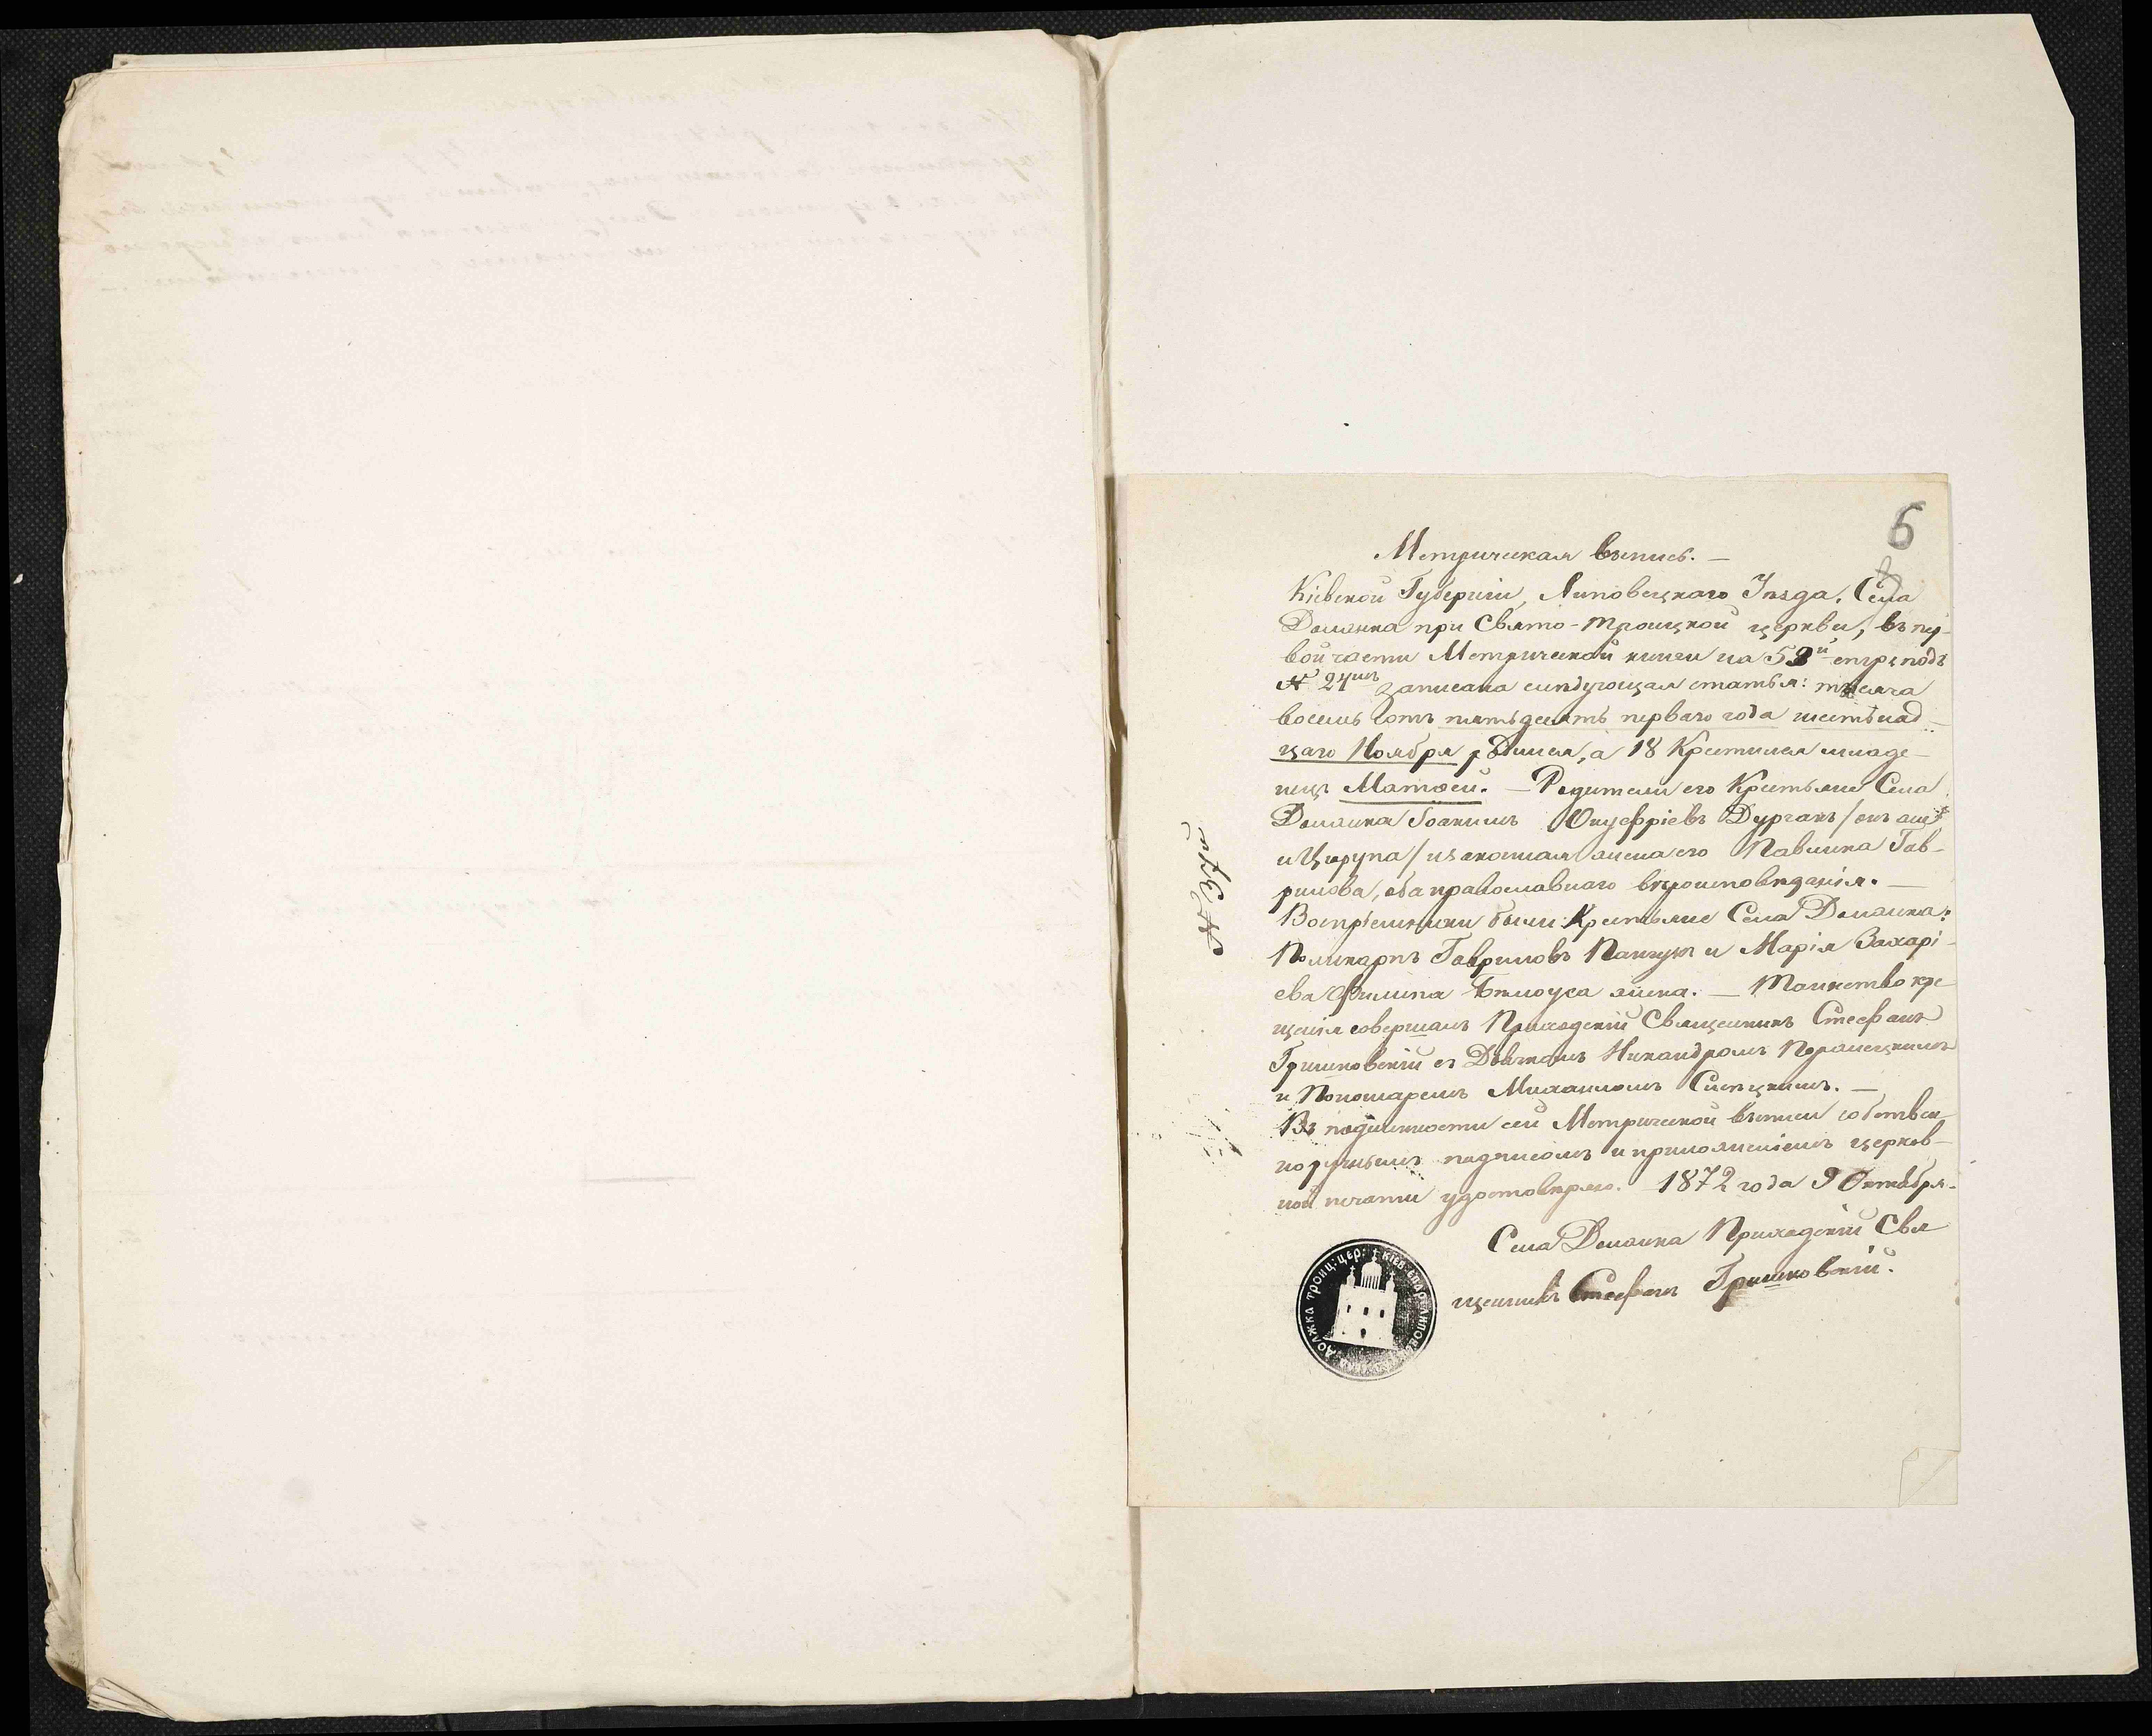 6
Метрическая выпись. —
Кіевской Губерніи, Липовецкаго Уѣзда, Села
Должка при Свято-Троицкой церкви, въ пер-
вой части Метрической книги на 58й стрц подъ
№ 24мъ записана слѣдующая статья: тысяча
восемь сотъ пятьдесятъ перваго года шестьнад-
цаго Ноября родился, а 18 Крестился младе-
нецъ Матѳей. — Родители его Крестьяне Села
Должка Іоакимъ Онуфріевъ Дурганъ /онъ же
и Цюрупа/ и законная жена его Павлина Гав-
рилова, оба православнаго вѣроисповѣданія. —
Воспріемники были: Крестьяне Села Должка:
Поликарпъ Гавриловъ и Марія Захарі-
ева Филипа Бѣлоуса жена. — Таинство кре-
щенія совершалъ Приходскій Священникъ Стефанъ
Гришковскій съ Дьячкомъ Никандромъ
и Пономаремъ Михаиломъ —
Въ подлинности сей Метрической выписи собствен-
норучнымъ подписомъ и приложеніемъ церков-
ной печати удостовѣряю. 1872 года 9 Октября.
Села Должка Приходскій Свя
щенникъ Стефанъ Гришковскій.
№ 37й
Должка Троиц: цер: Кіев. епар. Липов.